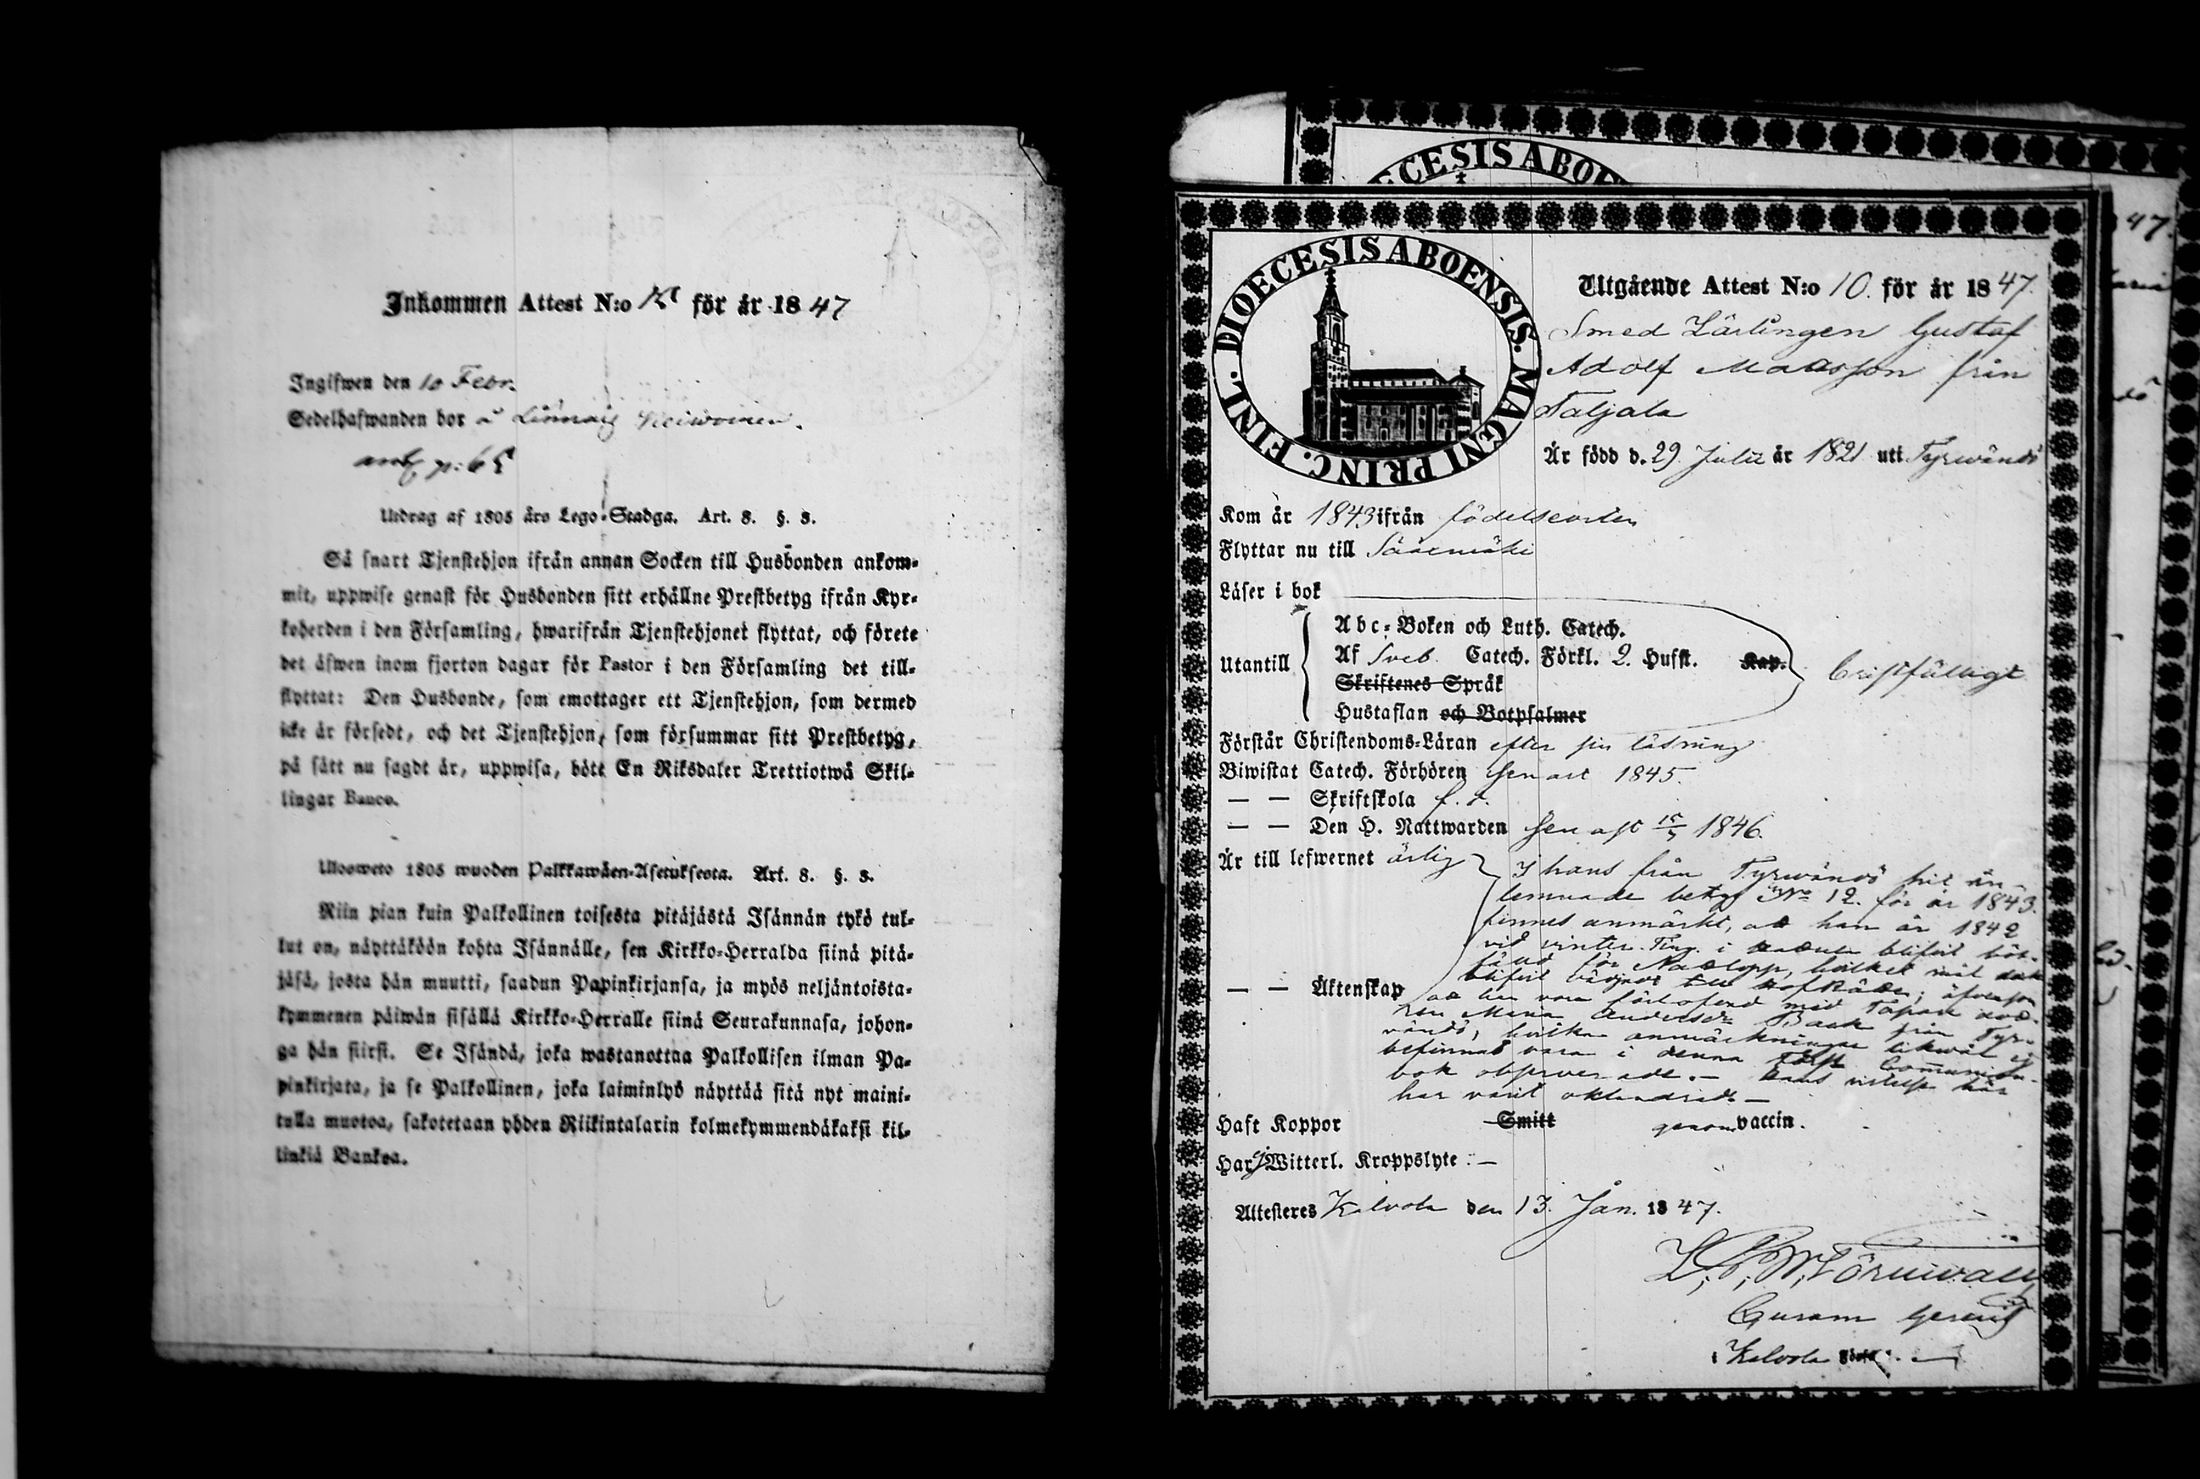 Inkommen Attest N:o för år 1847
Ingifwen den 10 Febr.
Sedelhafwanden bor å
p: 65
Utdrag af 1805 års Lego-Stadga. Art. 8. §. 3.
Så snart Tjenstehjon ifrån annan Socken till Husbonden ankom-
mit, uppwise genast för Husbonden sitt erhållne Prestbetyg ifrån Kyr-
koherden i den Församling, hwarifrån Tjenstehjonet flyttat, och förete
det äfwen inom fjorton dagar för Pastor i den Församling det till-
flyttat: Den Husbonde, som emottager ett Tjenstehjon, som dermed
icke är försedt, och det Tjenstehjon, som försummar sitt Prestbetyg,
på sätt nu sagdt är, uppwisa, böte En Riksdaler Trettiotwå Skil-
lingar Banco.
Ulosweto 1805 wuoden Palkkawäen-Asetuksesta. Art. 8. §. 3.
Niin pian kuin Palkollinen toisesta pitäjästä Isännän tykö tul-
lut on, näyttäköön kohta Isännälle, sen Kirkko-Herralda siinä pitä-
jäsä, josta hän muutti, saadun Papinkirjansa, ja myös neljäntoista-
kymmenen päiwän sisällä Kirkko-Herralle siinä Seurakunnasa, johon-
ga hän siirsi. Se Isändä, joka wastanottaa Palkollisen ilman Pa-
pinkirjata, ja se Palkollinen, joka laiminlyö näyttää sitä nyt maini-
tulla muotoa, sakotetaan yhden Riikintalarin kolmekymmendäkaksi kil-
linkiä Bankoa.
DIOECESIS ABOE
47.
DIOECESIS ABOENSIS. MAGNI PRINC. FINL.
Utgående Attest N:o 10. för år 1847.
Smed Lärlingen Gustaf
Adolf Matsson från
Taljala
Är född d. 29 Julii år 1821 uti Tyrwändö
Kom år 1843 ifrån födelseorten
Flyttar nu till Sääxmäki
Läser i bok
Utantill
Abc-Boken och Luth. Catech.
Af Sveb. Catech. Förkl. 2. Husst. Kap. Bristfälligt
Skriftenes Språk
Hustaflan och Botpsalmer
Förstår Christendoms-Läran efter sin läsning
Biwistat Catech. Förhören senast 1845.
— — Skriftskola
— — Den H. Nattwarden senast 1846.
Är till lefwernet ärlig
I hans från Tyrwändö hit än-
lemnade betyg No 12. för år 1843.
finnes anmärkt, att han år 1842
vid vinter Ting i blifvit böt-
fälld för
— — Äktenskap
bok observerade. — Hans vistelse här
har varit oklandrad. —
Haft Koppor Smitt genom vaccin.
Har ej Witterl. Kroppslyte: —
Attesteras Kalvola den 13. Jan. 1847.
i Kalvola